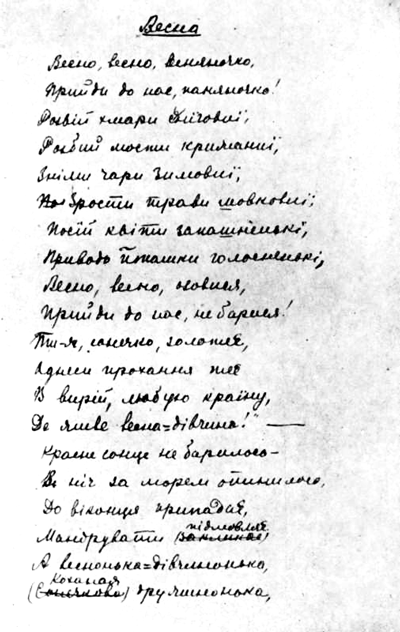 Весна
Весно, весно, весняночко,
Прийди до нас, паняночко!
Розвій хмари снігові,
Розбий мости крижані,
Зніми чари зимові,
Зрости трави шовкові,
Посій квіти запашненькі,
Приводь пташки голосненькі,
Весно, весно, озовися,
Прийди до нас, не барися!
Ти-ж, сонечко, золоте,
Однеси прохання те
В вирій, любую країну,
Де живе весна=дівчина!" —
Красне сонце не барилося —
В ніч за морем опинилося,
До віконця припадає,
Мандрувати підмовляє
А весонька=дівчинонька,
Коханая
(Сонечкова) дружинонька,